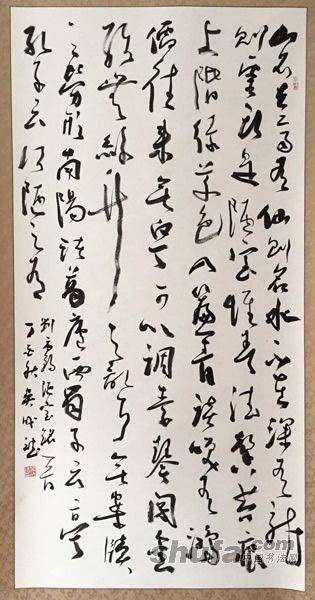 山不在高有仙则名水不在深有龙
则灵斯是陋室惟吾德馨苔痕
上阶绿草色入帘青谈笑有鸿
儒往来无白丁可以调素琴阅金
经无丝竹之乱耳无案牍
之劳形南阳诸葛庐西蜀子云亭
孔子云何陋之有
刘禹锡陋室铭一首
丁酉秋
shufa.com
中国书法网